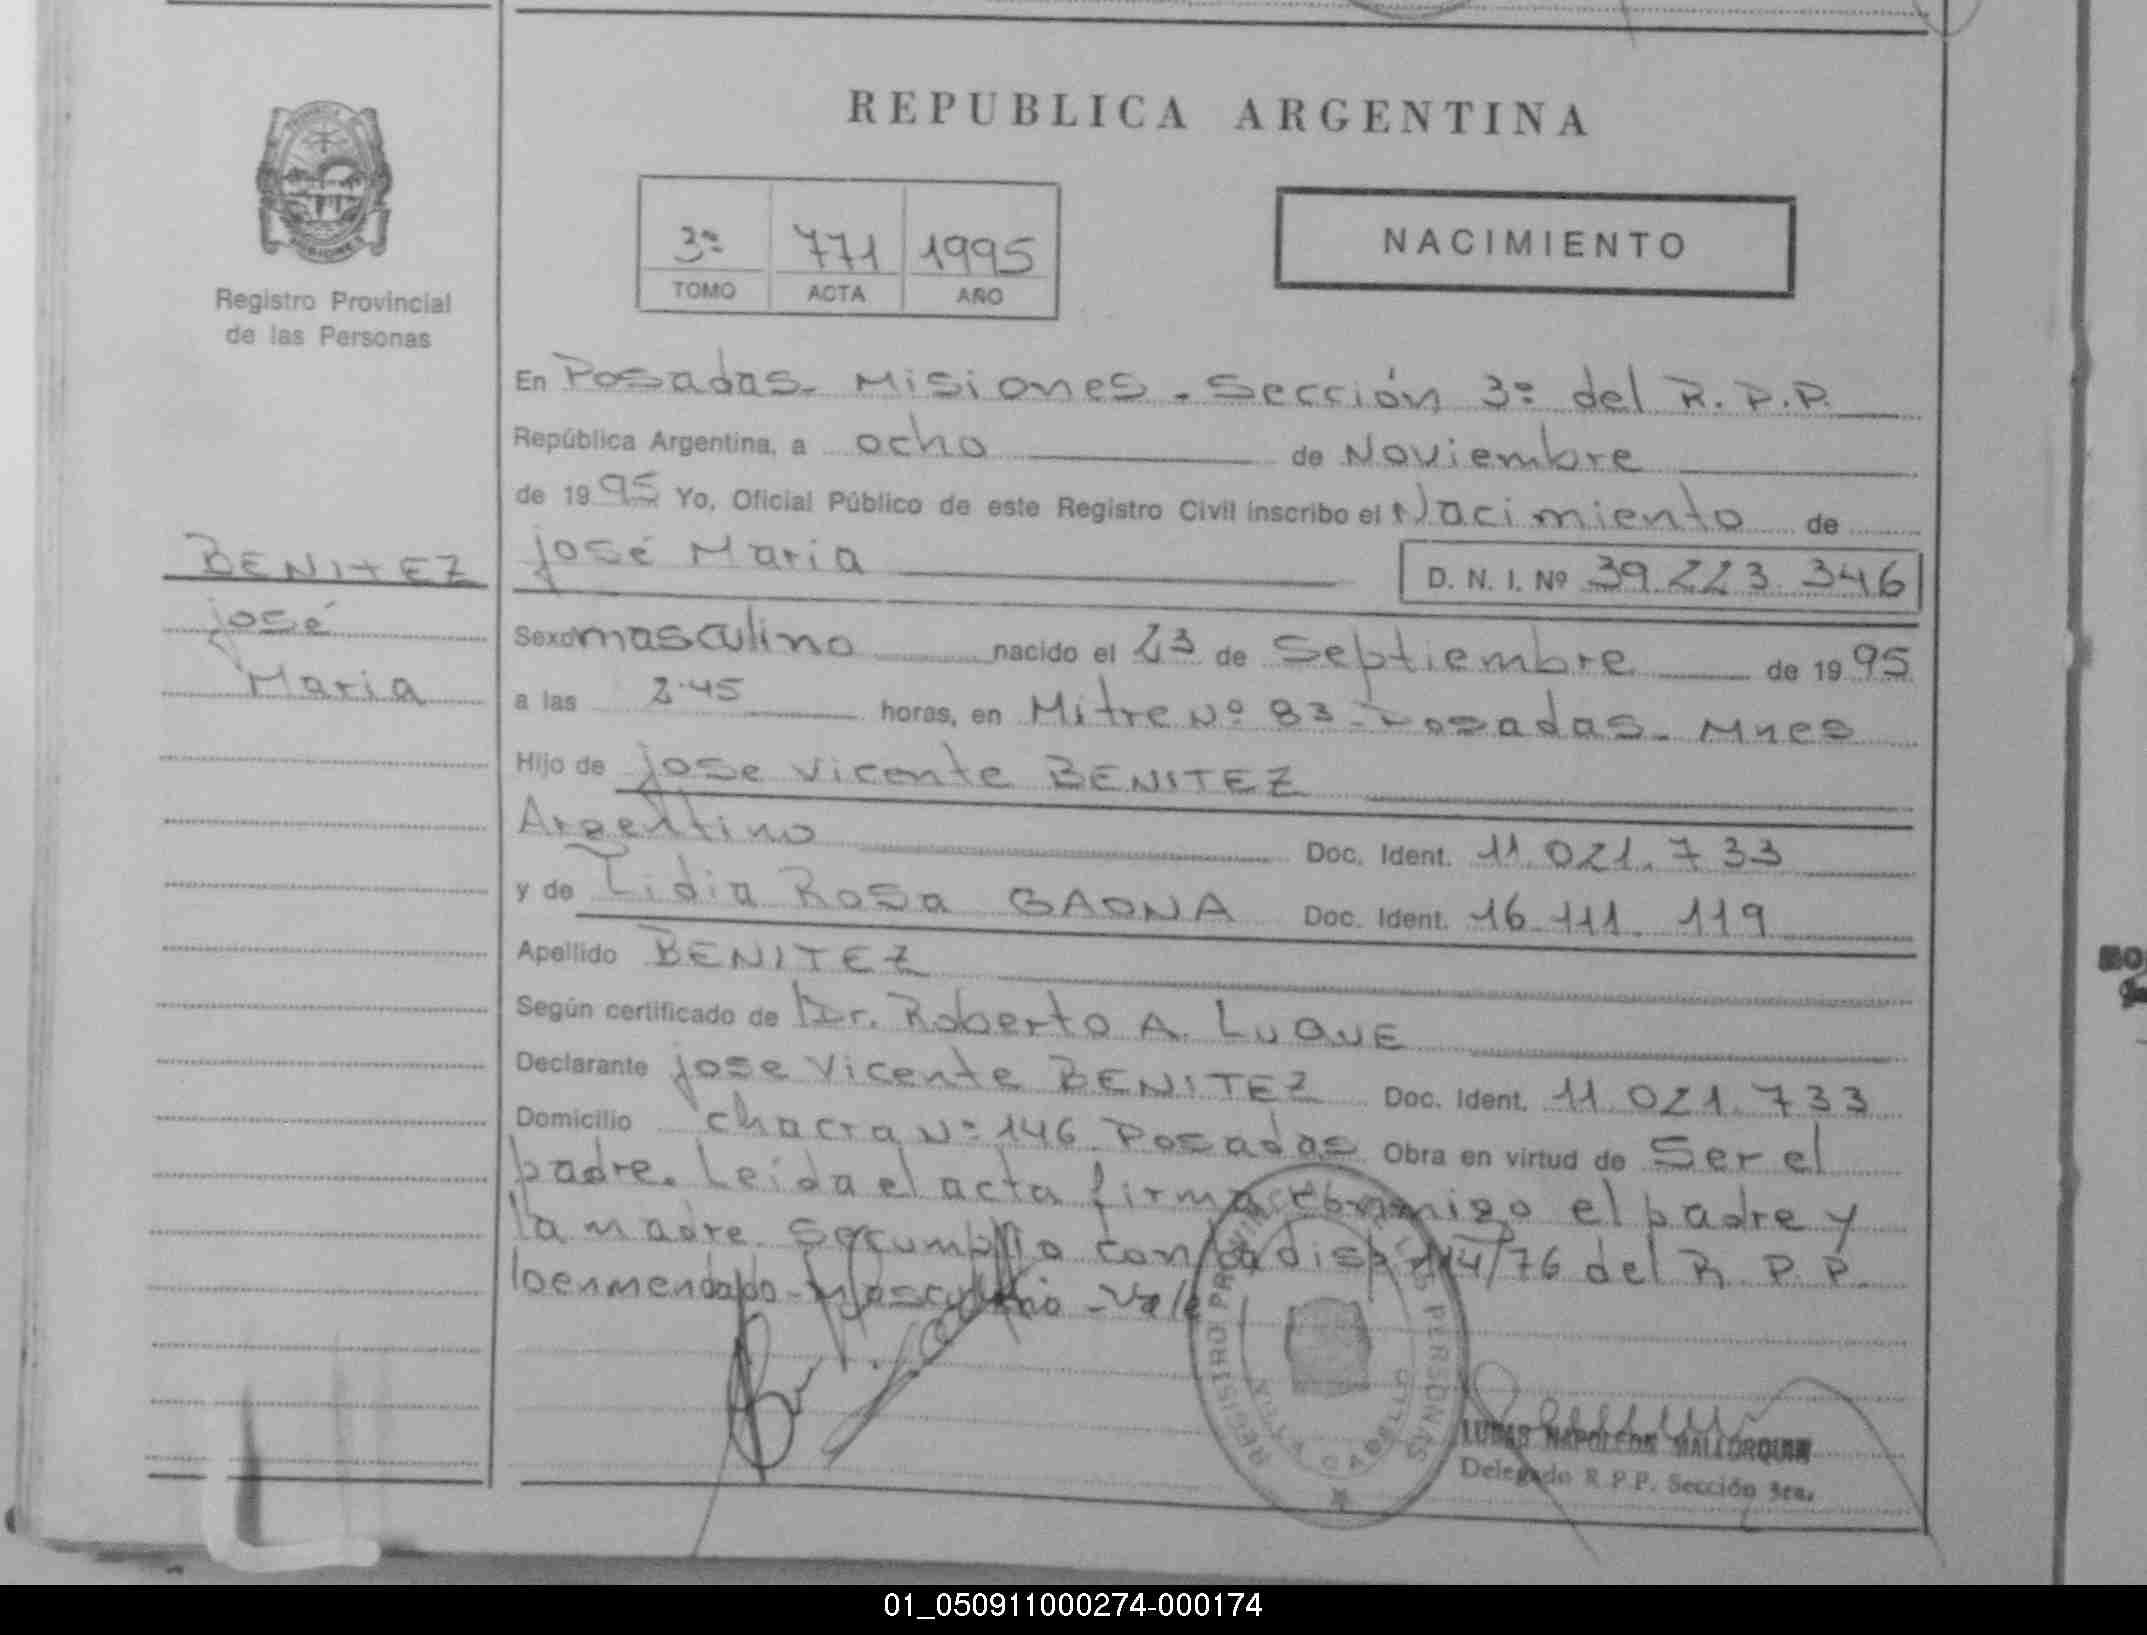 REPUBLICA ARGENTINA
3º 771 1995
TOMO ACTA AÑO
NACIMIENTO
Registro Provincial
de las Personas
En Posadas - Misiones - Sección 3º del R.P.P.
República Argentina, a ocho de Noviembre
de 1995 Yo, Oficial Público de este Registro Civil inscribo el Nacimiento de
BENITEZ
José
Maria
José Maria D. N. I. Nº 39.223.346
Sexo masculino nacido el 23 de Septiembre de 1995
a las 2.45 horas, en Mitre Nº 83 - Posadas - Mnes
Hijo de Jose Vicente BENITEZ
Argentino Doc. Ident. 11.021.733
y de Lidia Rosa GAONA Doc. Ident. 16.111.119
Apellido BENITEZ
Según certificado de Dr. Roberto A. LUQUE
Declarante Jose Vicente BENITEZ Doc. Ident. 11.021.733
Domicilio chacra Nº 146 Posadas Obra en virtud de Ser el
padre. Leida el acta firma conmigo el padre y
la madre. Se cumplio con la disp. /76 del R.P.P.
lo enmendado - Masculino - Vale
REGISTRO PROVINCIAL DE LAS PERSONAS
VILLA CABELLO
LUCAS NAPOLEON MALLORQUIN
Delegado R.P.P. Sección 3ra.
01_050911000274-000174